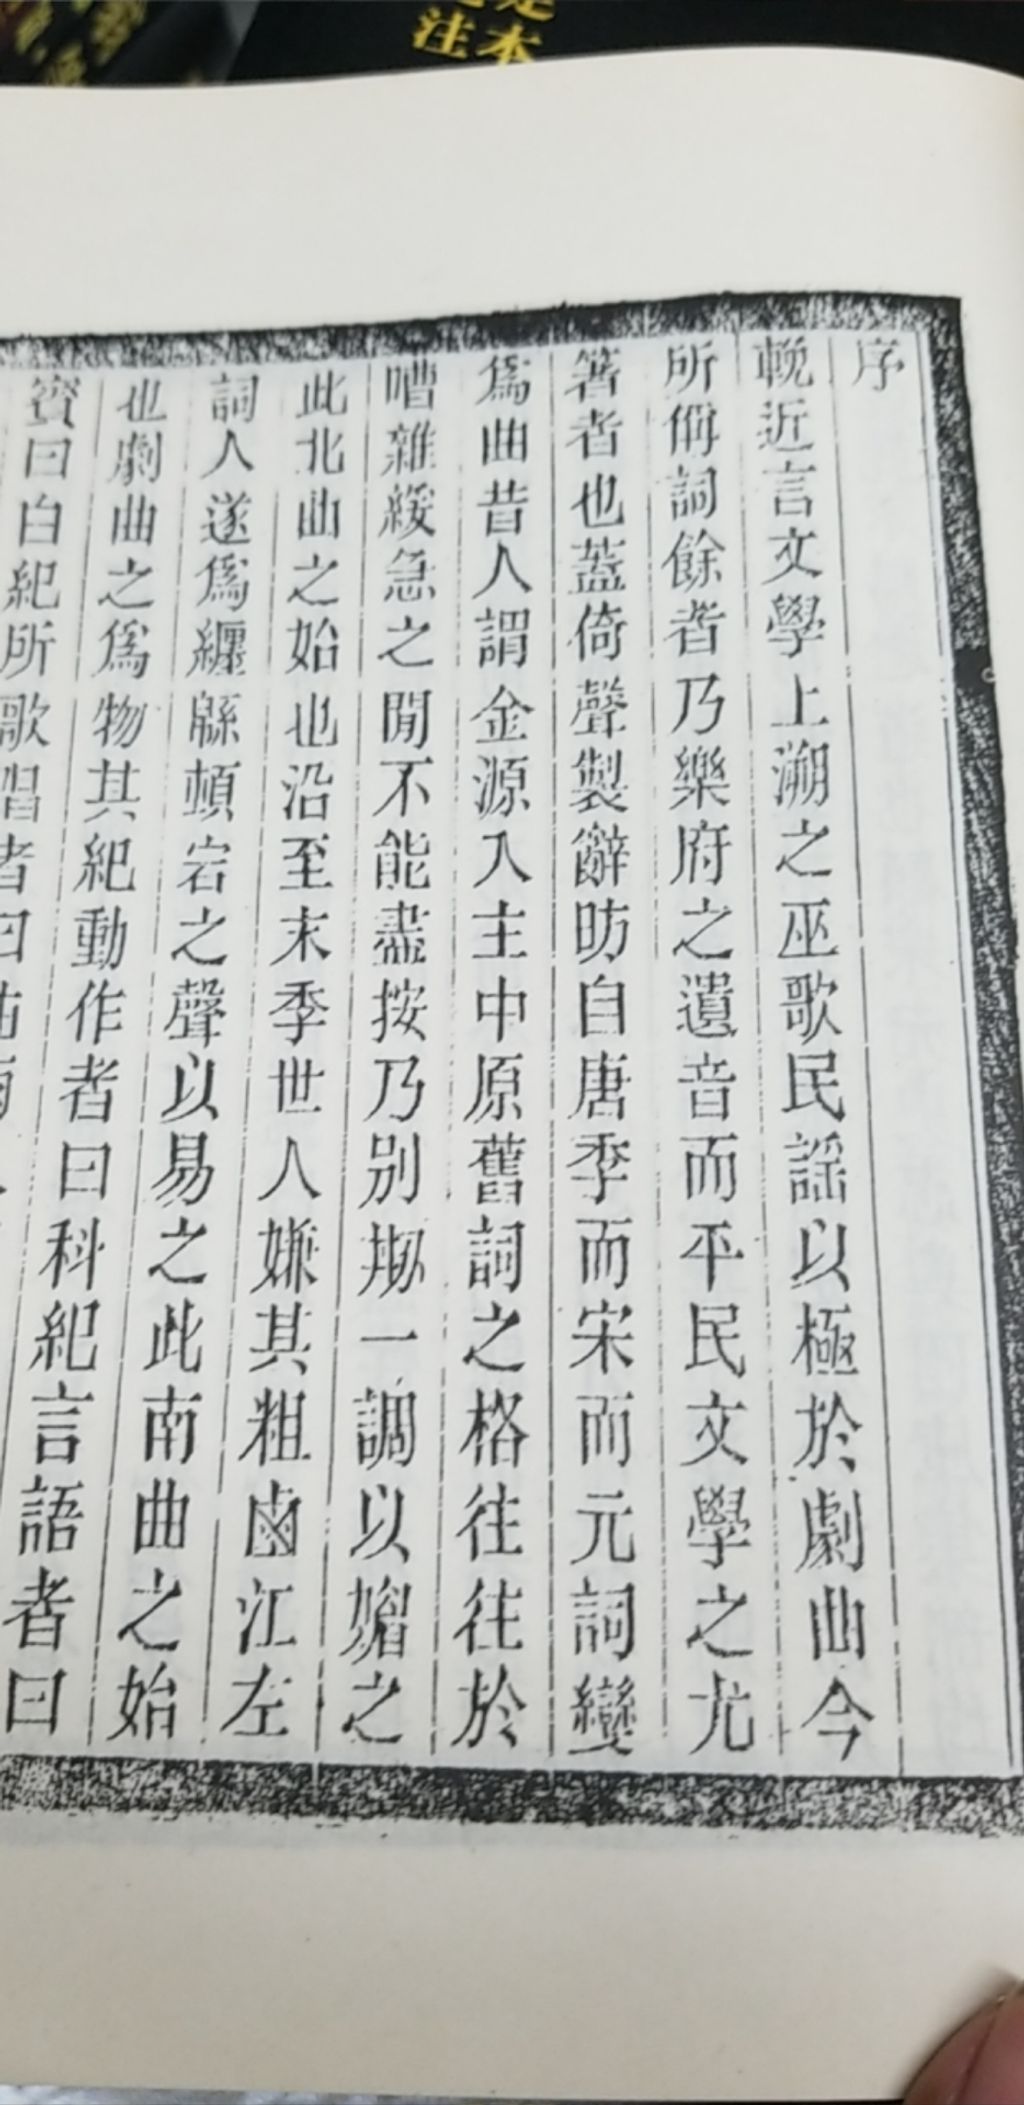 注本
序
輓近言文學上溯之巫歌民謠以極於劇曲今
所偁詞餘者乃樂府之遺音而平民文學之尤
箸者也蓋倚聲製辭昉自唐季而宋而元詞變
爲曲昔人謂金源入主中原舊詞之格往往於
嘈雜緩急之閒不能盡按乃別剙一調以媚之
此北曲之始也沿至末季世人嫌其粗鹵江左
詞人遂爲纏緜頓宕之聲以易之此南曲之始
也劇曲之爲物其紀動作者曰科紀言語者曰
賓曰白紀所歌唱者曰